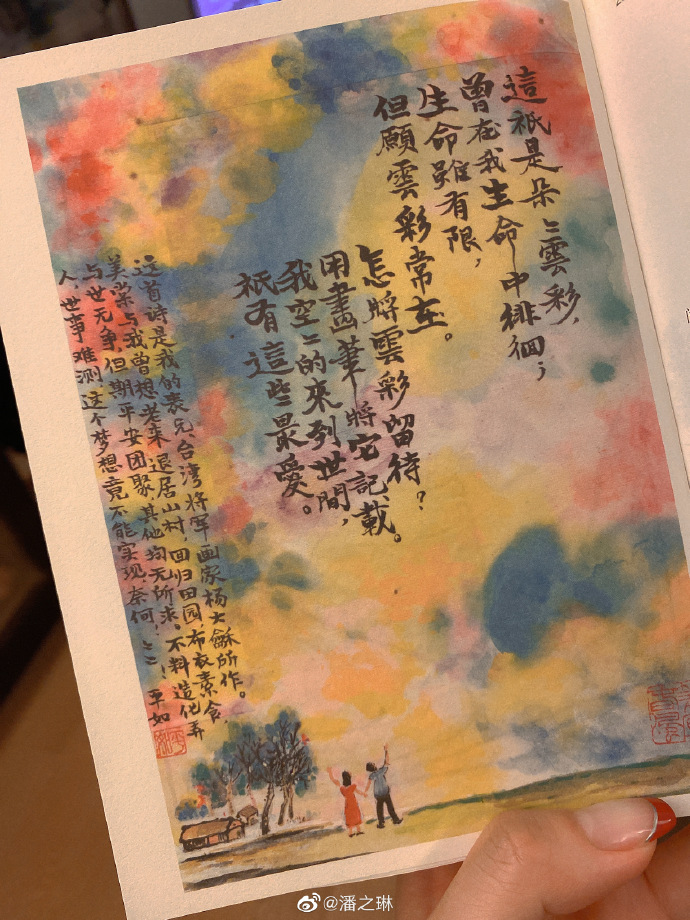 這祇是朵〻雲彩，
曾在我生命中徘徊；
生命雖有限，
但願雲彩常在。
怎將雲彩留待？
用畫筆將它記載。
我空〻的來到世間，
祇有這些最愛。
这首诗是我的表兄、台湾将军画家杨大龢所作。
美棠与我曾想老来退居山村，回归田园，布衣素食，
与世无争，但期平安团聚，其他均无所求。不料造化弄
人，世事难测，这个梦想竟不能实现，奈何！〻〻！平如
@潘之琳